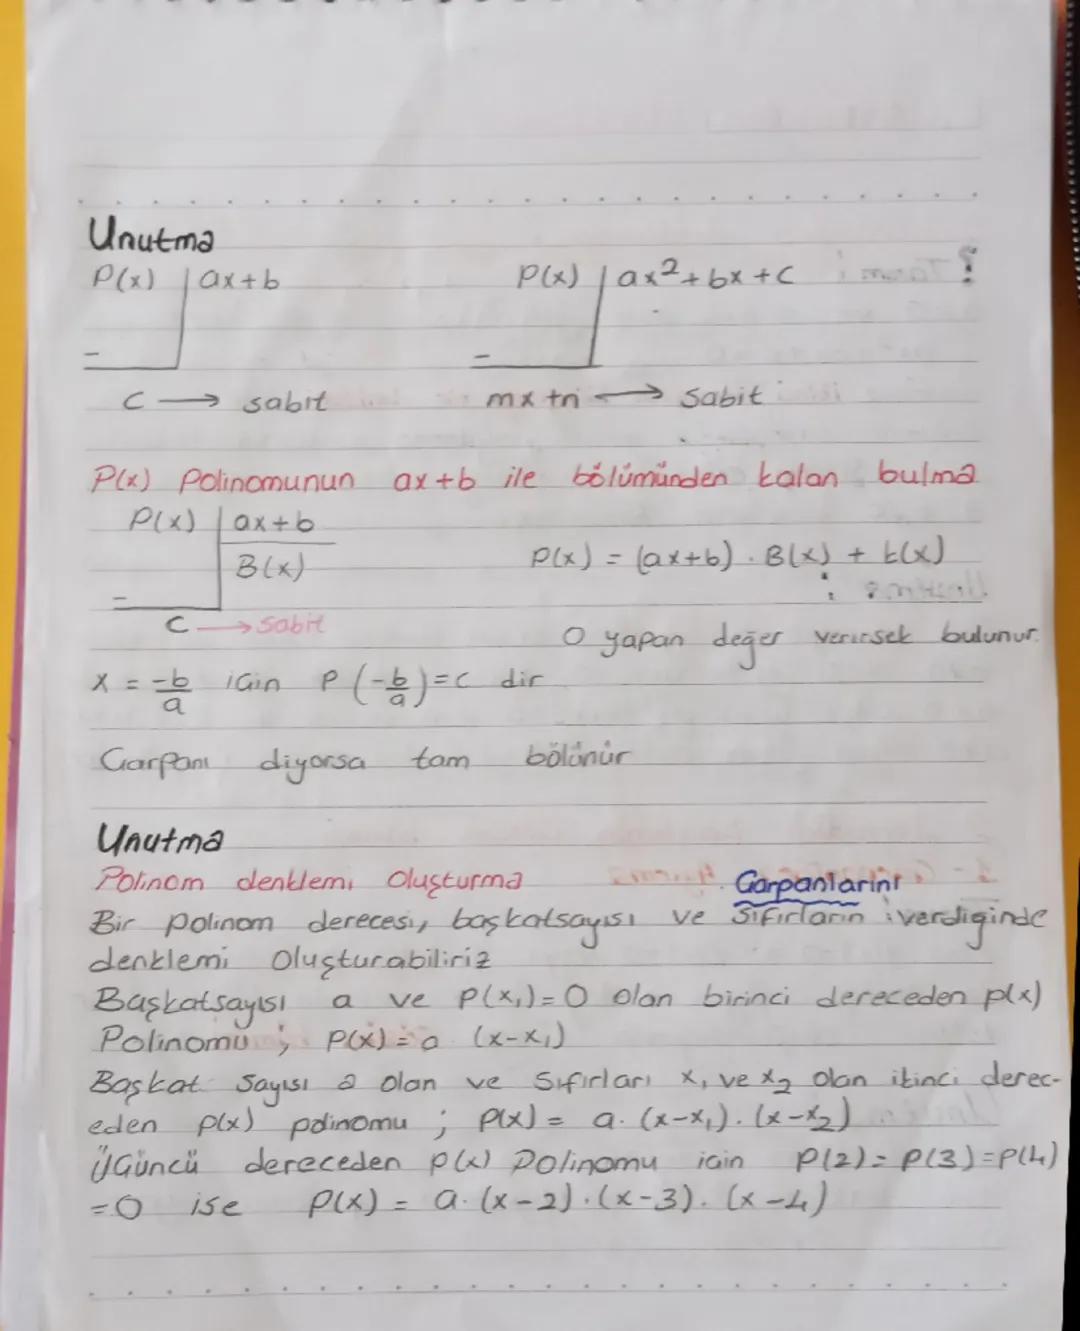 Unutma
P(x) | ax+b
P(x) | ax²+bx+c
c → sabit
mx+n → sabit
P(x) Polinomunun ax+b ile bölümünden kalan bulma
P(x) | ax+b
B(x)
P(x) = (ax+b) . B(x) + k(x)
c → sabit
0 yapan değer verirsek bulunur.
x = -b/a için P(-b/a)=c dir
Çarpanı diyorsa tam bölünür
Unutma
Polinom denklemi Oluşturma
Çarpanlarını
Bir polinom derecesi, başkatsayısı ve sıfırların verdiginde
denklemi Oluşturabiliriz
Başkatsayısı a ve P(x₁)=0 olan birinci dereceden p(x)
Polinomu ; P(x) = a (x-x₁)
Başkat sayısı a olan ve sıfırları x₁ ve x₂ olan ikinci derec-
eden p(x) polinomu ; P(x) = a.(x-x₁).(x-x₂)
Üçüncü dereceden p(x) Polinomu için P(2)=P(3)=P(4)
=0 ise P(x) = a.(x-2).(x-3).(x-4)